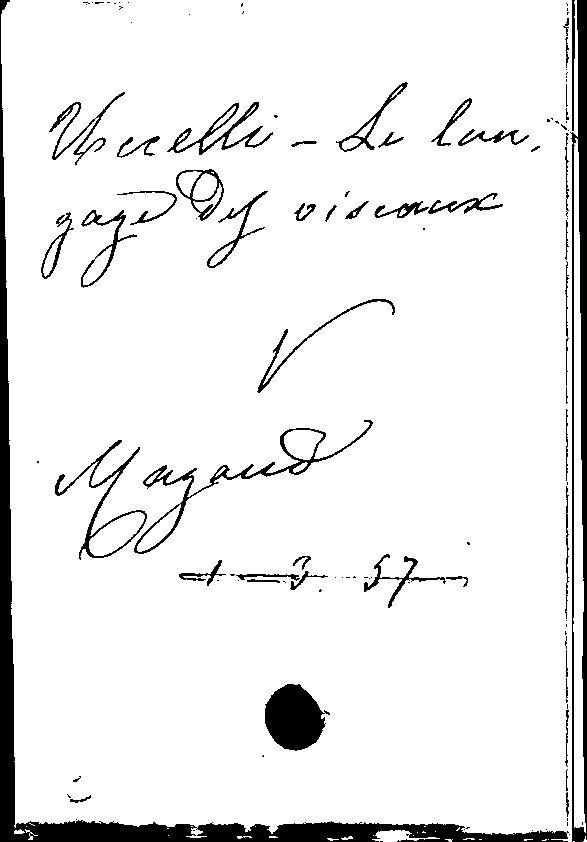 Uccelli - Le lan,
gage des oiseaux
V
Magaud
1 3. 57